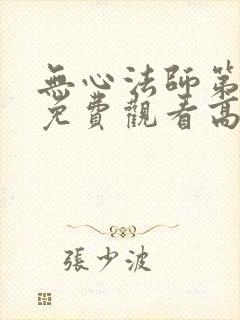 無心法師第
免費觀看高
張少波